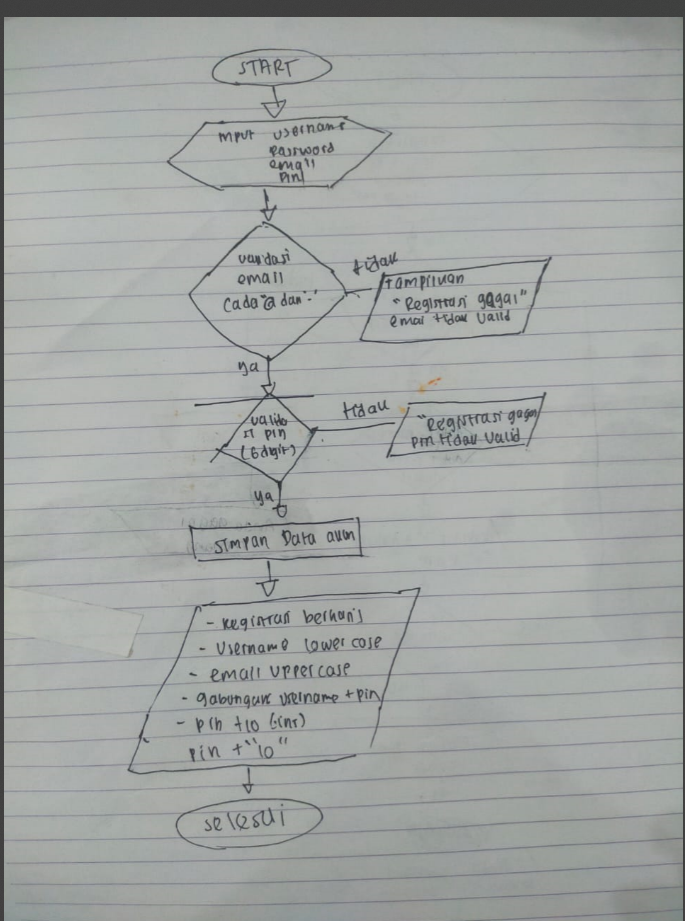 START
input username
password
email
pin
validasi
email
(ada "@ dan ".")
tidak
tampilkan
"Registrasi gagal"
email tidak valid
ya
valida
si pin
(6 digit)
tidak
"Registrasi gagal
pin tidak valid
ya
simpan Data akun
- Registrasi berhasil
- Username lower case
- email uppercase
- gabungan username + pin
- pin +10 (int)
pin + "10"
selesai